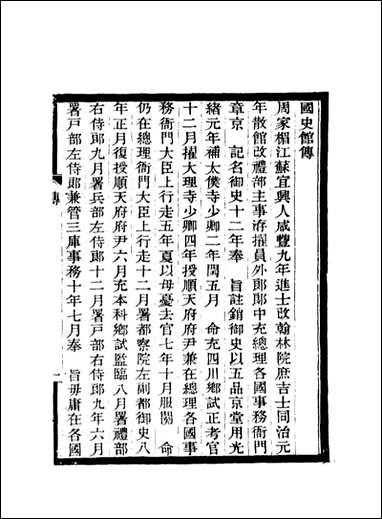 國史館傳
周家楣江蘇宜興人咸豐九年進士改翰林院庶吉士同治元
年散館改禮部主事洊擢員外郎郎中充總理各國事務衙門
章京　記名御史十二年奉　旨註銷御史以五品京堂用光
緒元年補太僕寺少卿二年閏五月　命充四川鄉試正考官
十二月擢大理寺少卿四年授順天府府尹兼在總理各國事
務衙門大臣上行走五年夏以母憂去官七年十月服闋　命
仍在總理衙門大臣上行走十二月署都察院左副都御史八
年正月復授順天府府尹六月充本科鄉試監臨八月署禮部
右侍郎九月署兵部左侍郎十二月署戶部右侍郎九年六月
署戶部左侍郎兼管三庫事務十年七月奉　旨毋庸在各國
傳
一